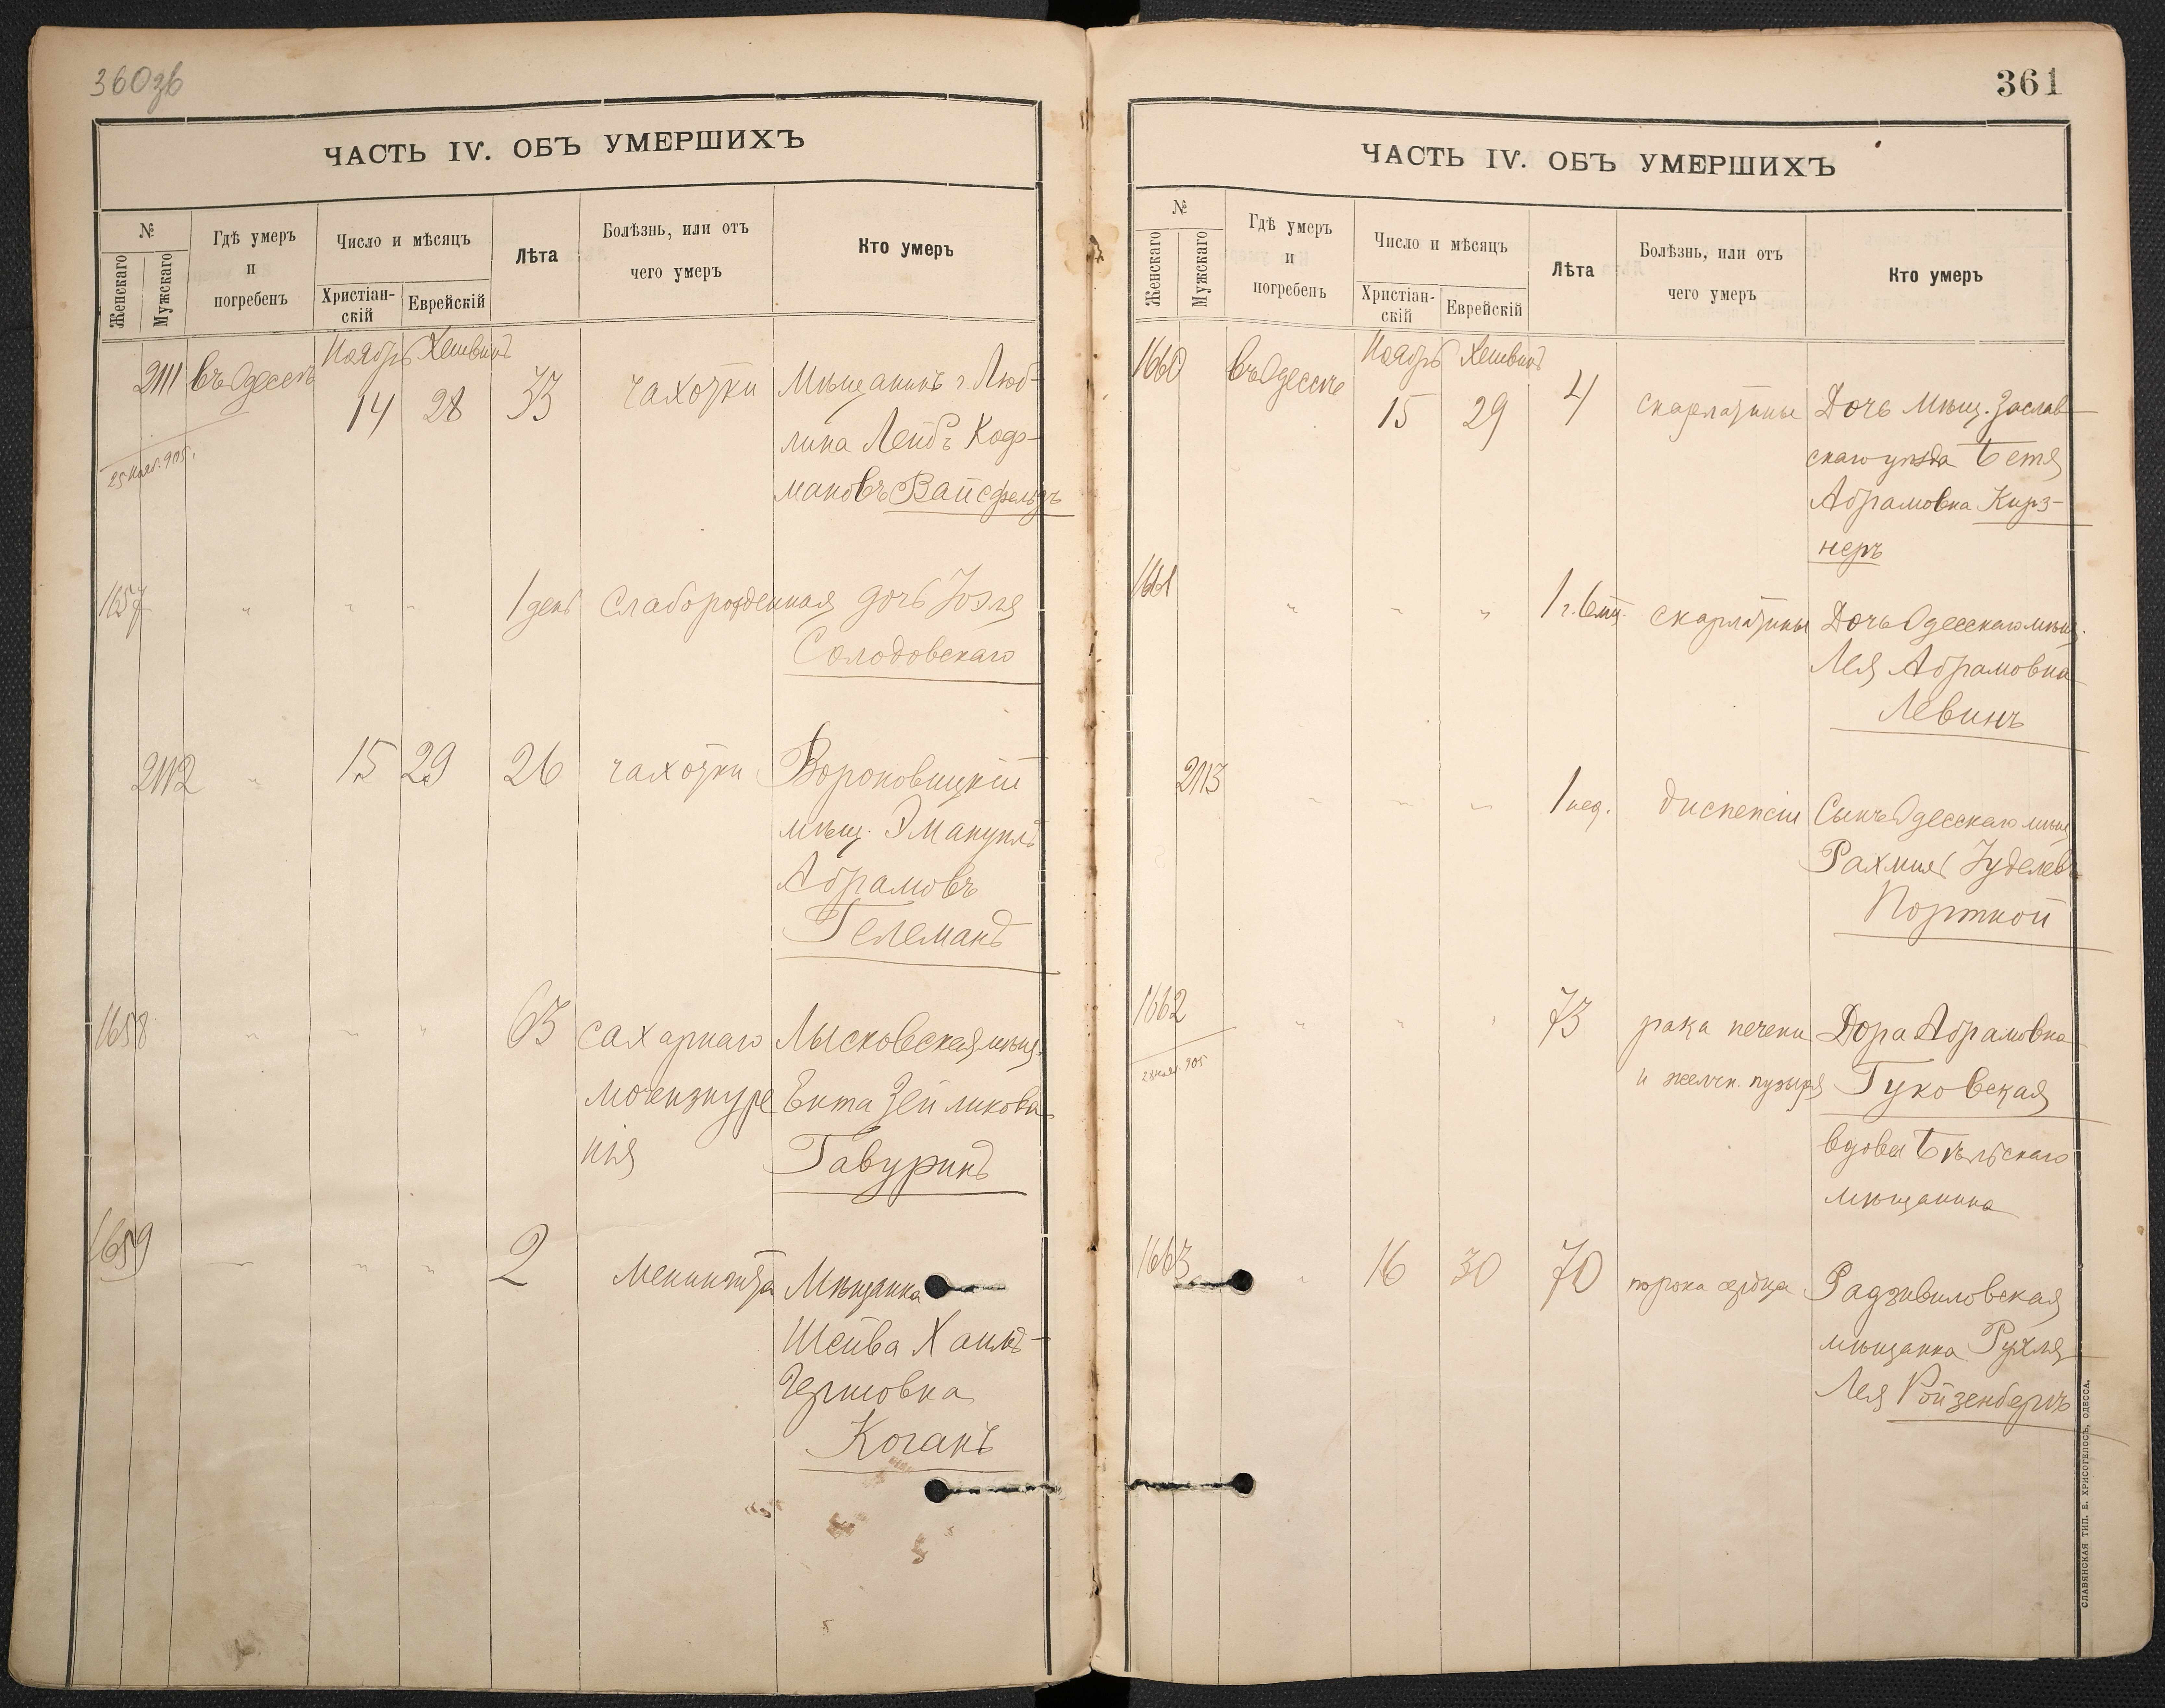 360зв
ЧАСТЬ IV. ОБЪ УМЕРШИХЪ
№
Женскаго
Мужскаго
Гдѣ умеръ
и
погребенъ
Число и мѣсяцъ
Христіан-
скій
Еврейскій
Лѣта
Болѣзнь, или отъ
чего умеръ
Кто умеръ
Ноябрь Хешвинъ
2111 въ Одессѣ 14 28 33 чахотки Мѣщанинъ г. Люб-
лина Лейбъ Коф-
мановъ Вайсфельдъ
25 нояб. 905.
1657 " " " 1 день слаборожденная дочь Іоэля
Солодовскаго
2112 " 15 29 26 чахотки Вороновицкій
мѣщ. Эмануилъ
Абрамовъ
Гелеманъ
1658 " " " 63 сахарнаго Лысковская мѣщ.
мочеизнуре Ента Зейликова
нія Гавуринъ
1659 " " " 2 менингита Мѣщанка
Шейва Хаимъ-
Гершовна
Коганъ
361
ЧАСТЬ IV. ОБЪ УМЕРШИХЪ
№
Женскаго
Мужскаго
Гдѣ умеръ
и
погребенъ
Число и мѣсяцъ
Христіан-
скій
Еврейскій
Лѣта
Болѣзнь, или отъ
чего умеръ
Кто умеръ
Ноябрь Хешвинъ
1660 въ Одессѣ 15 29 4 скарлатины Дочь мѣщ. Заслав-
скаго уѣзда Бетя
Абрамовна Кирз-
неръ
1661 " " " 1 г. 6 мѣс. скарлатины Дочь Одесскаго мѣщ.
Лея Абрамовна
Левинъ
2113 " " " 1 нед. диспепсіи Сынъ Одесскаго мѣщ
Рахміель Іуделевъ
Портной
1662 " " " 73 рака печени Дора Абрамовна
и желчн. пузыря Гуковская
вдова Бѣльскаго
мѣщанина
28 нояб. 905
1663 " 16 30 70 порока сердца Радзивиловская
мѣщанка Рухля
Лея Ройзенбергъ
СЛАВЯНСКАЯ ТИП. Е. ХРИСОГЕЛОСЪ, ОДЕССА.